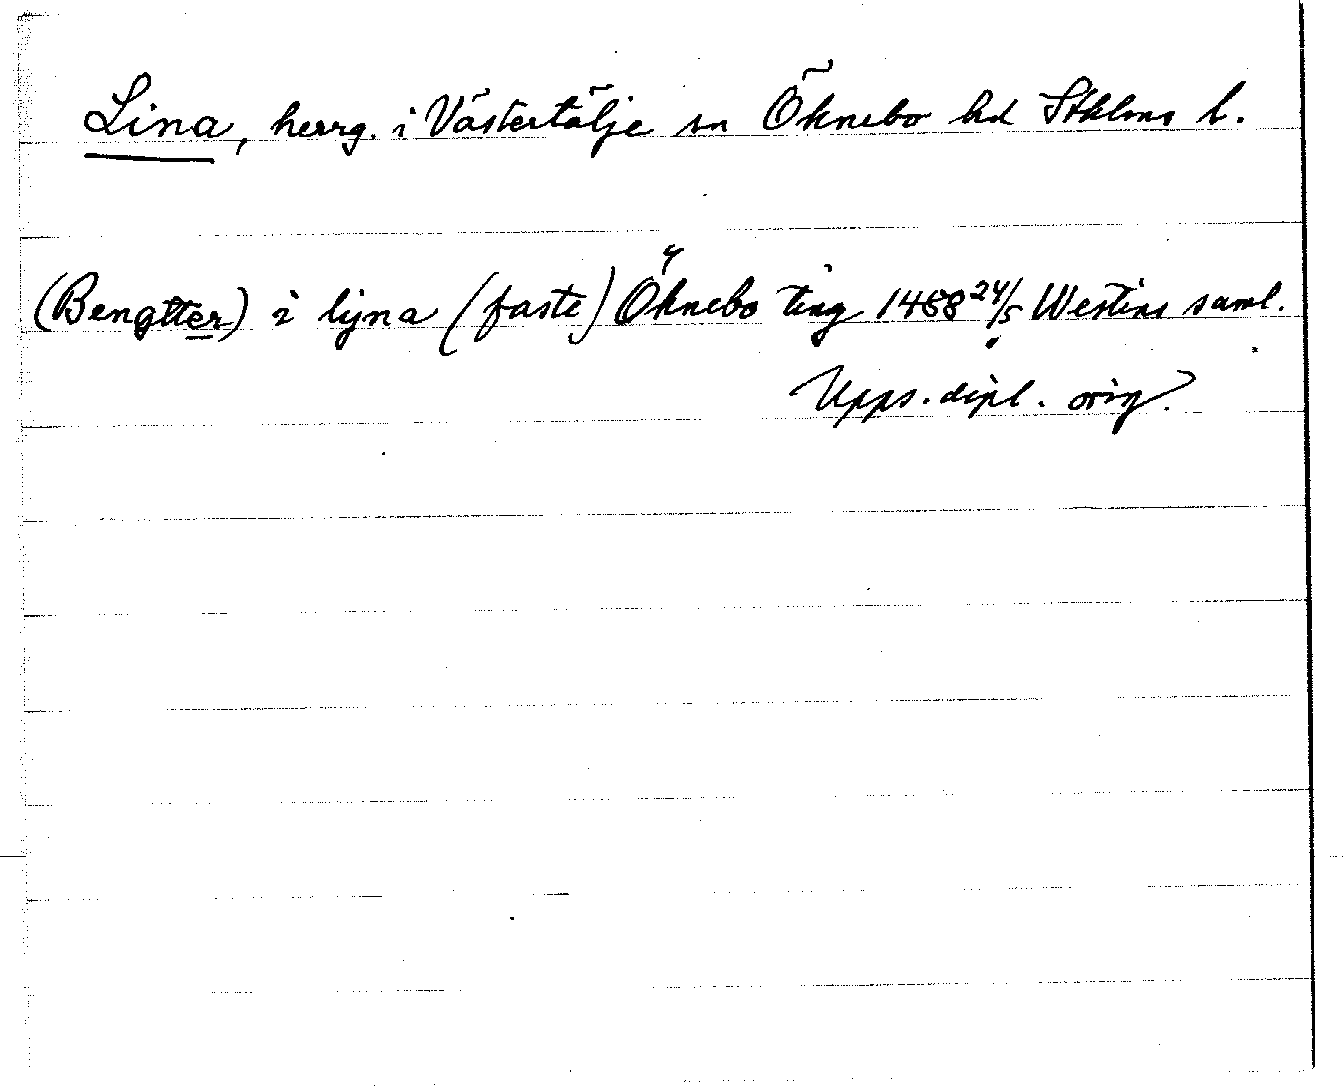 Lina, herrg. i Västertälje sn Öknebo hd Sthlms l.
(Bengtter) i lyna (faste) Öknebo ting 1458 24/5 Westins saml.
Upps. dipl. orig.